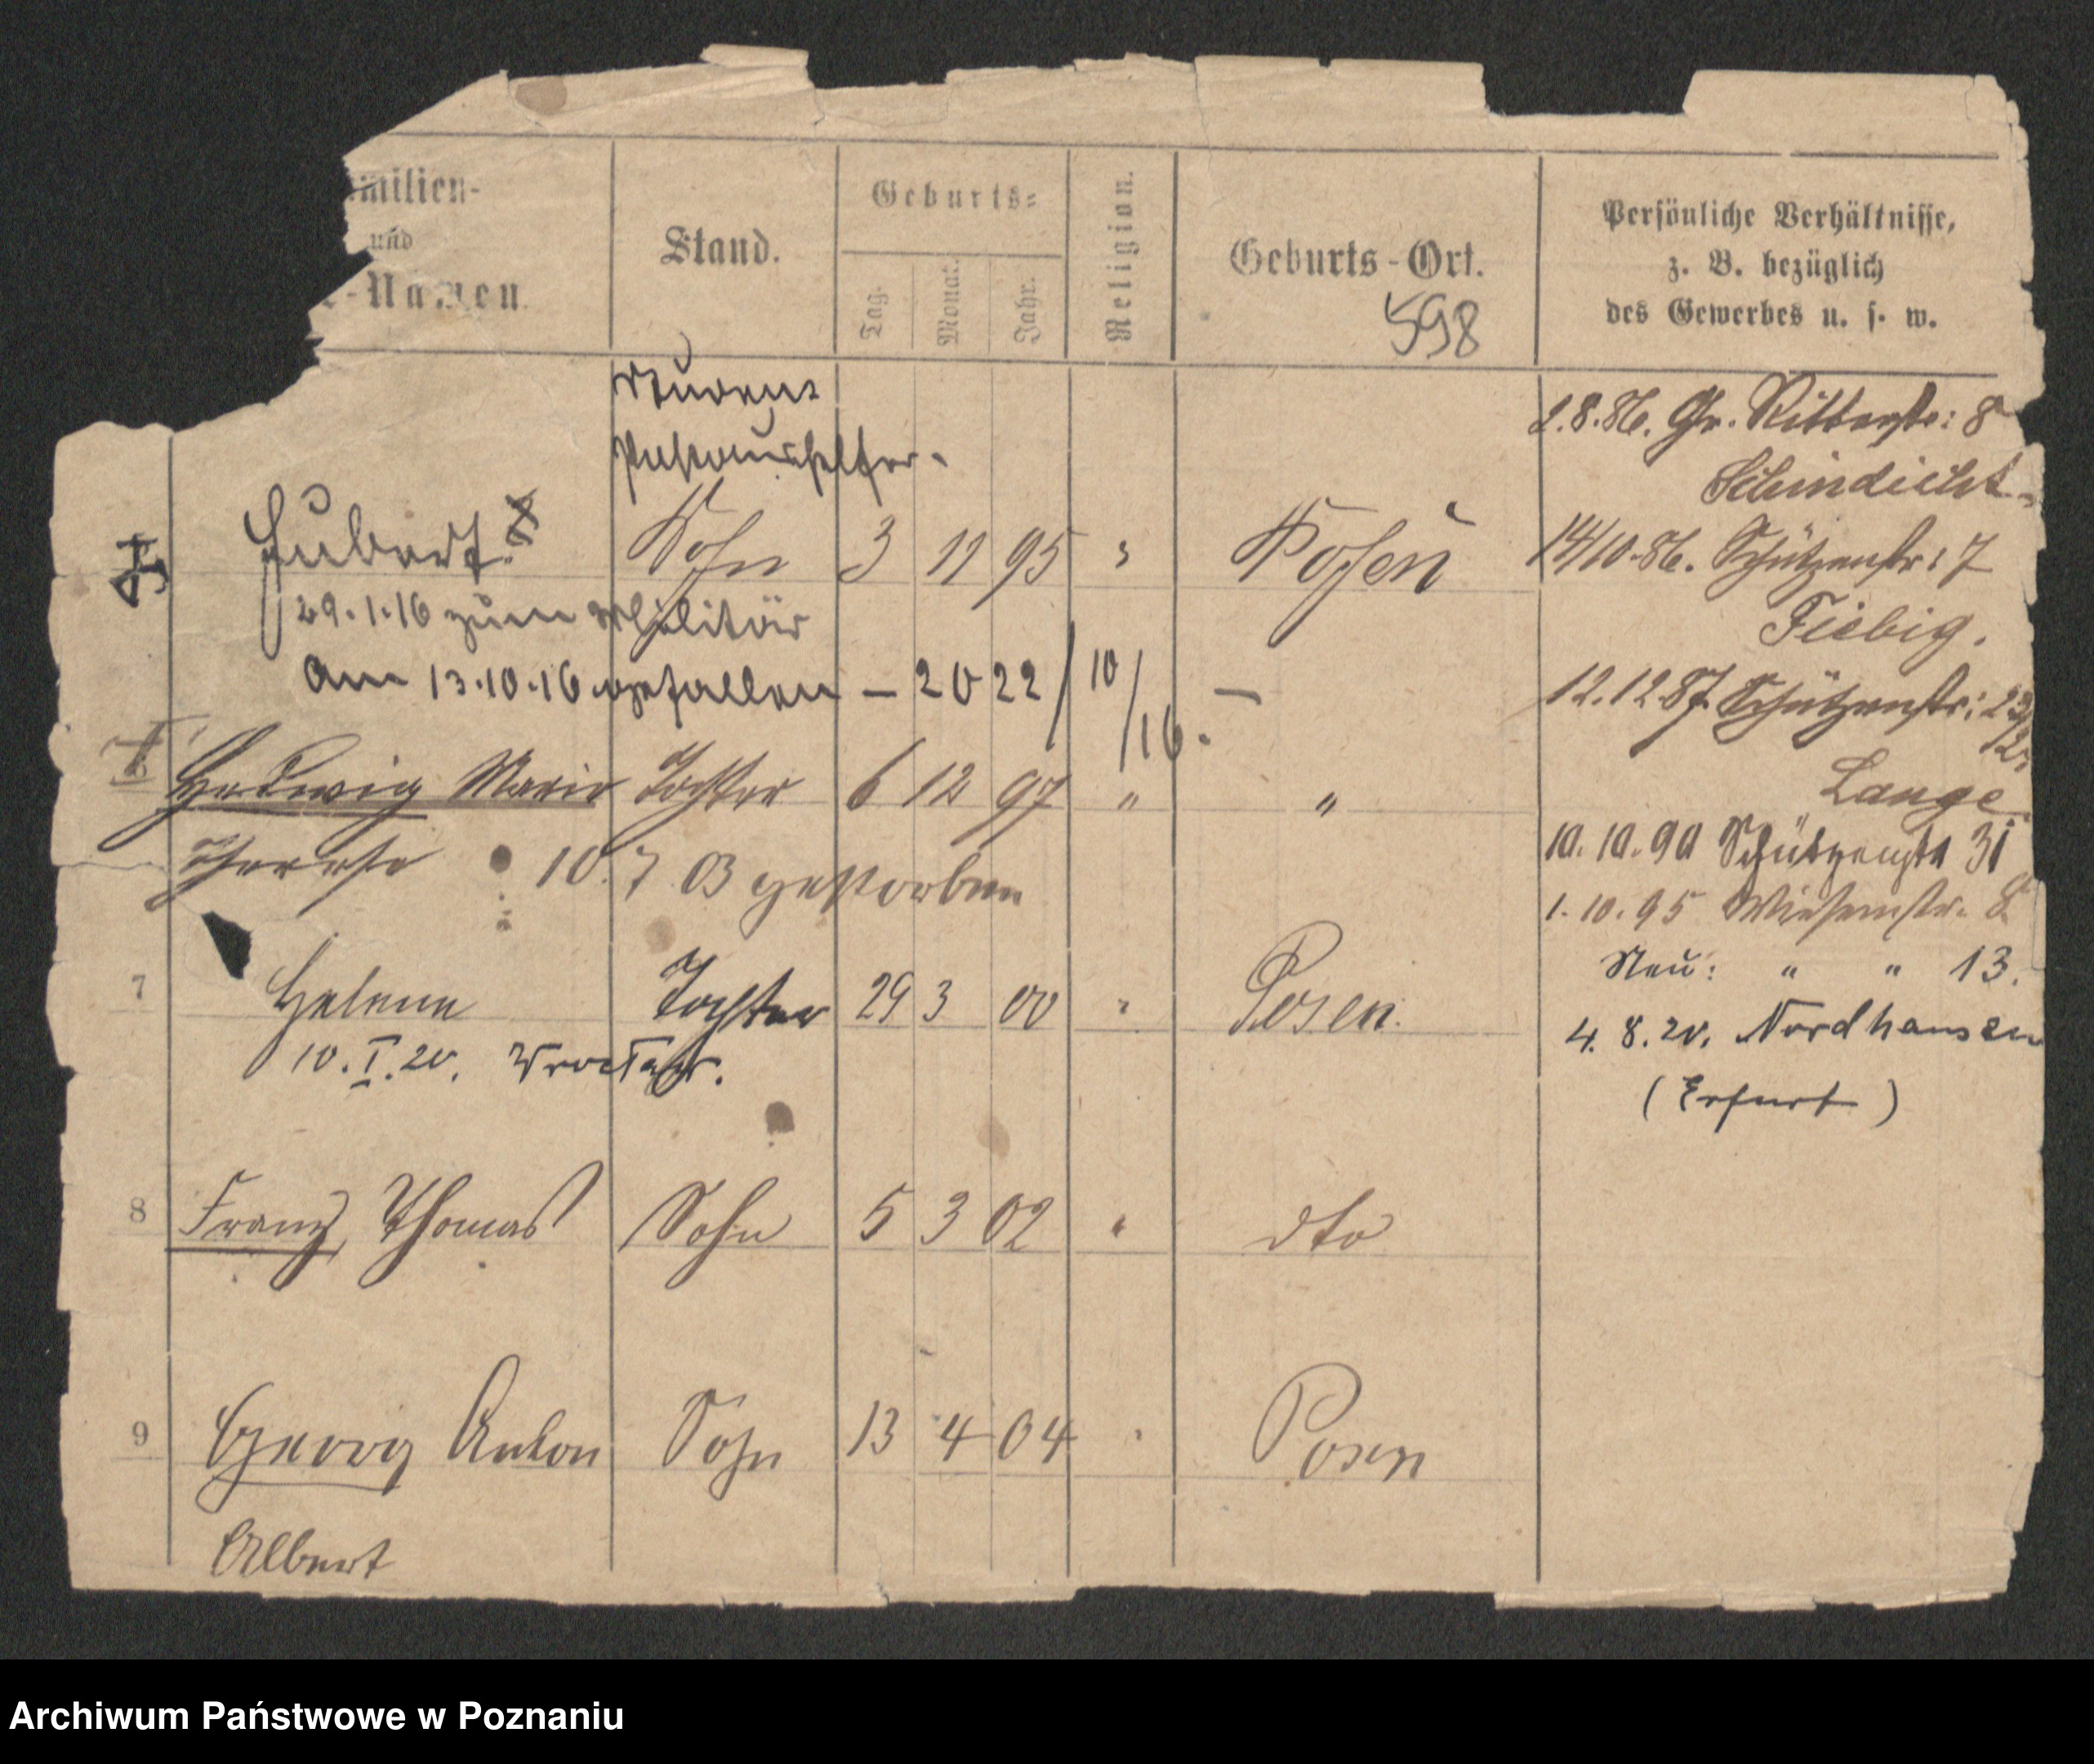 amilien-
und
-Namen.
Stand.
Geburts-
Tag.
Monat.
Jahr.
Religion.
Geburts-Ort.
598
Persönliche Verhältnisse,
z. B. bezüglich
des Gewerbes u. s. w.
Student
Postaushelfer.
Hubert Sohn 3 11 95 " Posen
29.1.16 zum Militär
Am 13.10.16 gefallen – 20 22/10/16. –
Hedwig Marie Tochter 6 12 97 " "
Therese 10. 7 03 gestorben
7 Helene Tochter 29 3 00 " Posen.
10.I.20. Wrocław.
8 Franz Thomas Sohn 5 3 02 " dto
9 Georg Anton Sohn 13 4 04 " Posen
Albert
2.8.86. Gr. Ritterstr: 8
14/10.86. Schützenstr: 7
Fiebig.
12.12.87. Schützenstr: 23/
Lange
10.10.90 Schützenstr 31
1.10.95 Wiesenstr. 8
Neu: " " 13.
4.8.20. Nordhausen
(Erfurt)
Archiwum Państwowe w Poznaniu